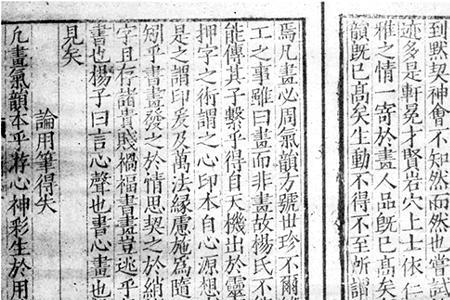 到默契神會不知然而然也嘗試
迹多是軒冕才賢岩穴上士依仁
雅之情一寄於畫人品既已髙矣
韻既已髙矣生動不得不至所謂
焉凡畫必周氣韻方號世珍不爾
工之事雖曰畫而非畫故楊氏不
能傳其子繫乎得自天機出於靈
押字之術謂之心印本自心源想
是之謂印爰及萬法緣慮施為隨
矧乎書畫發之於情思契之於綃
字且存諸貴賤禍福書畫豈逃乎
書也楊子曰言心聲也書心畫也
見矣
論用筆得失
凡畫氣韻本乎游心神彩生於用